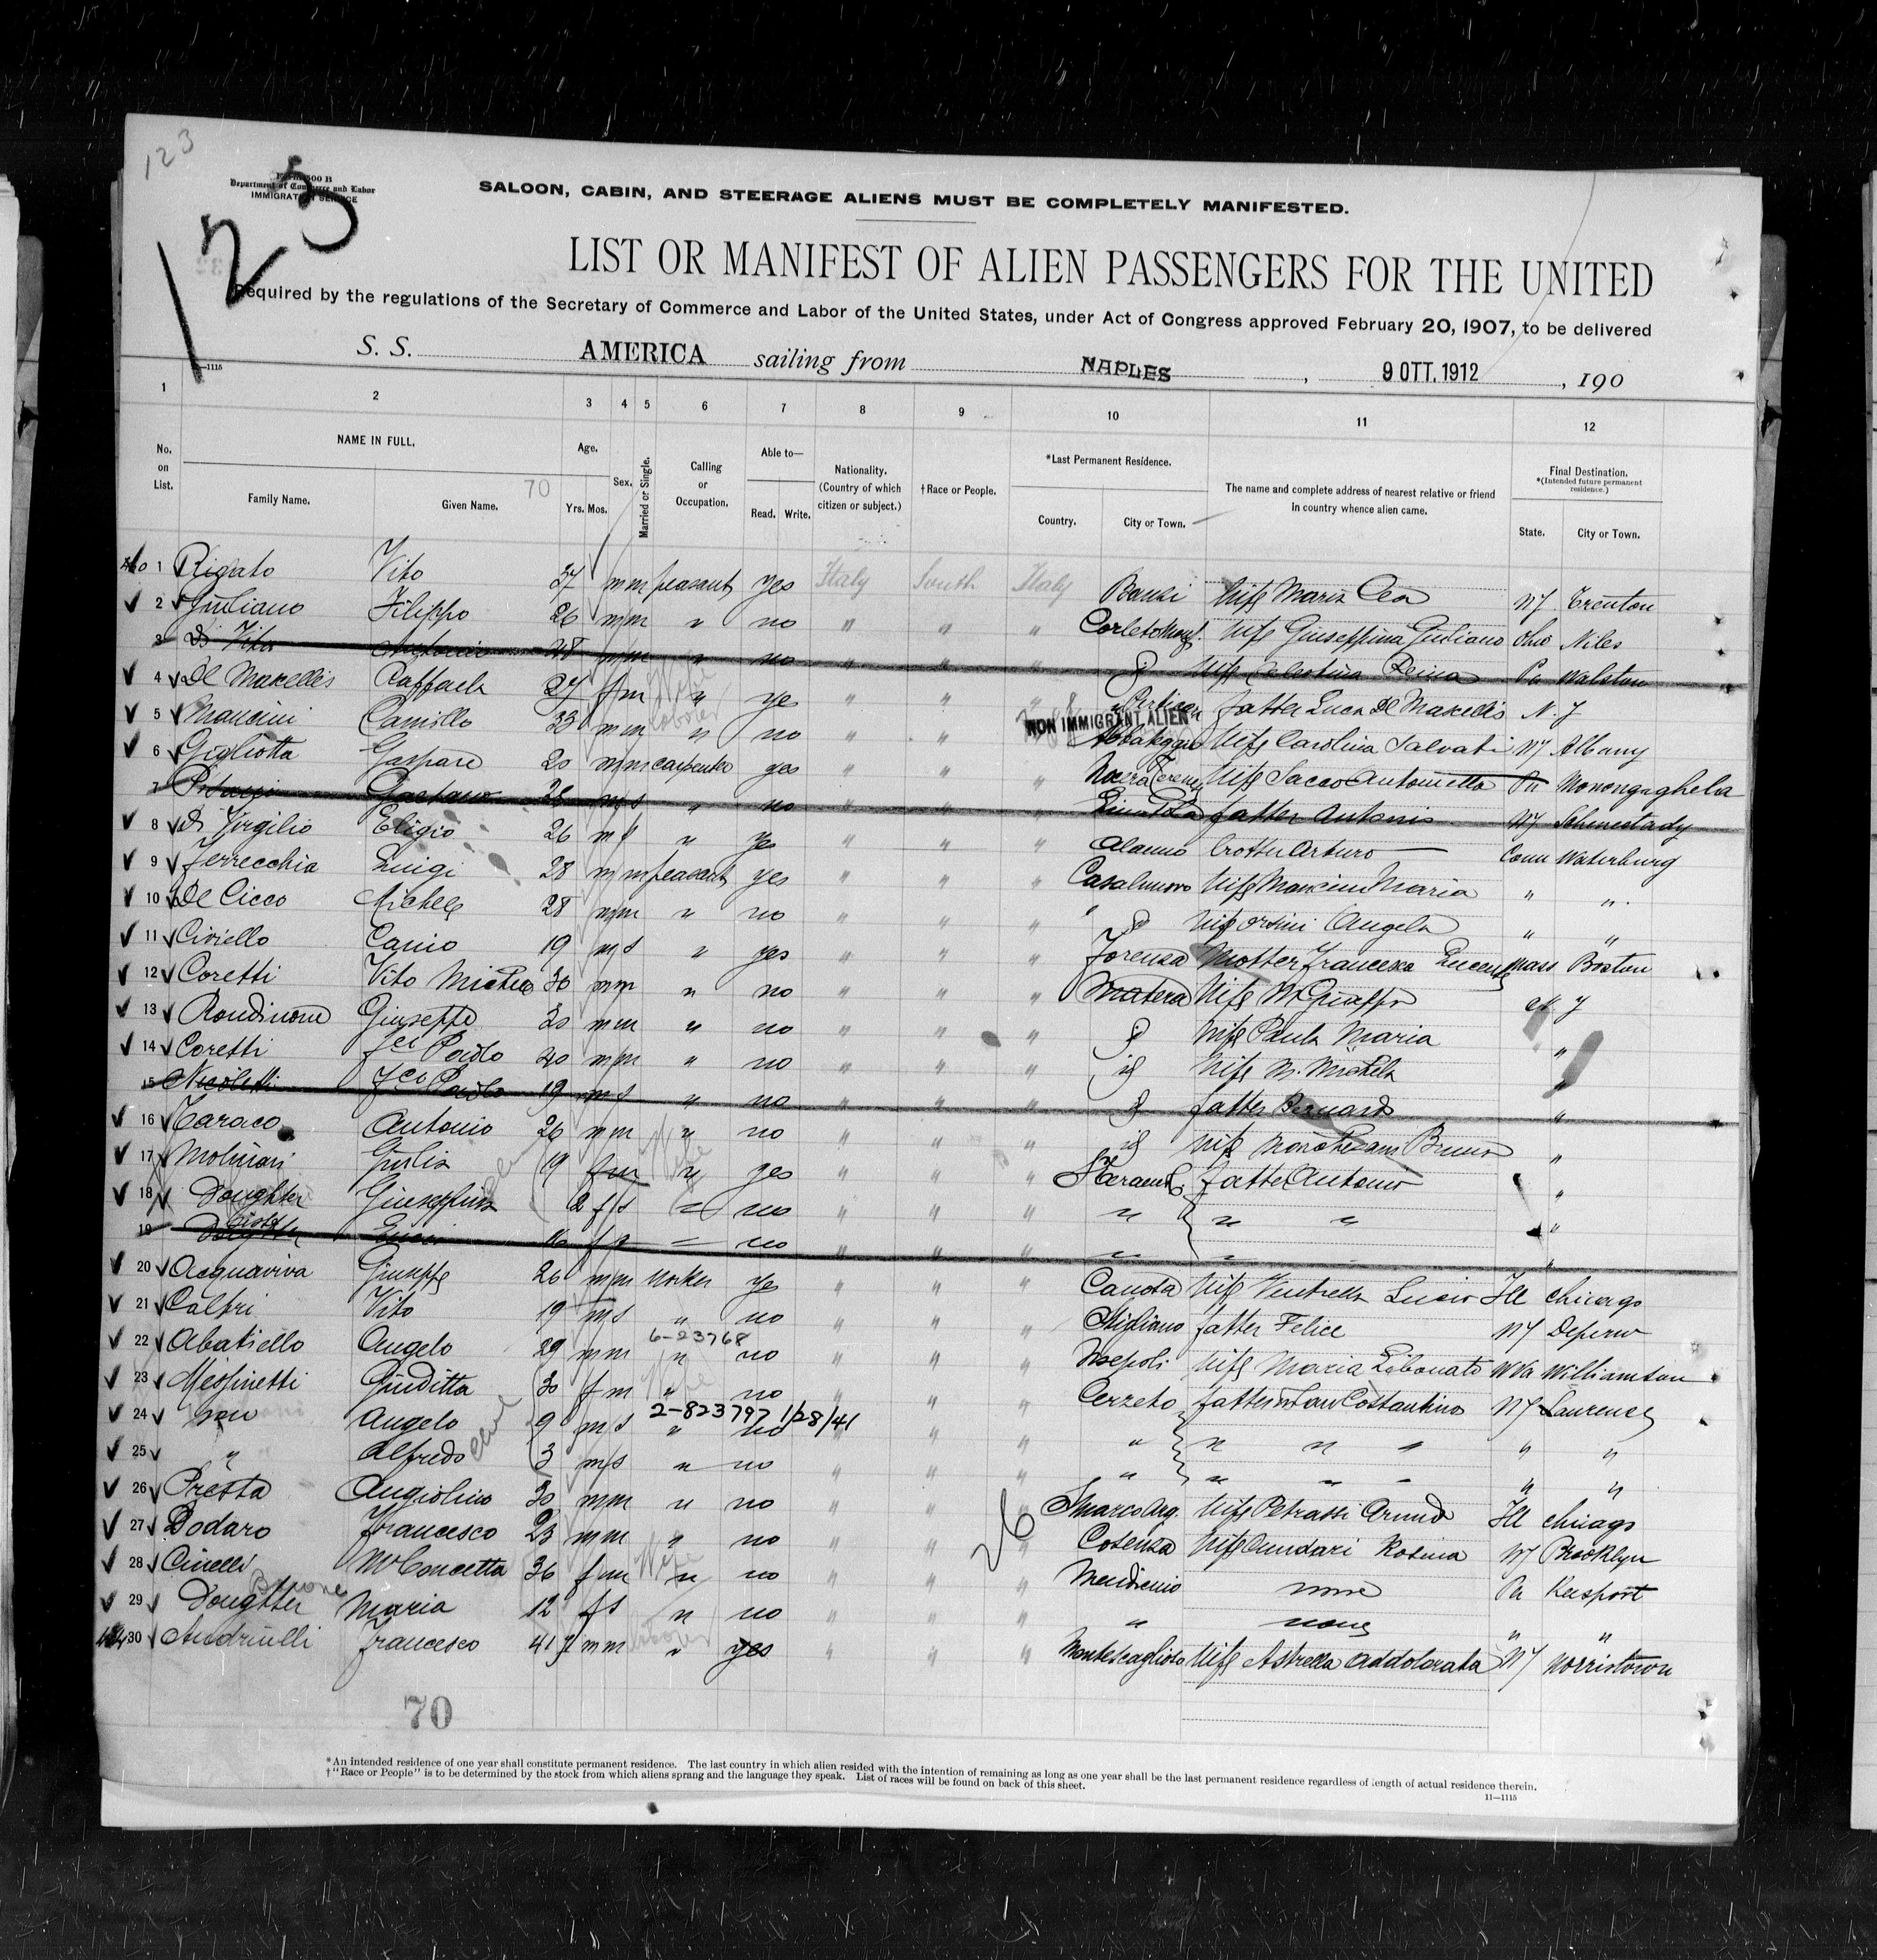 123
Form 500 B
Department of Commerce and Labor
IMMIGRATION SERVICE
123
SALOON, CABIN, AND STEERAGE ALIENS MUST BE COMPLETELY MANIFESTED.
LIST OR MANIFEST OF ALIEN PASSENGERS FOR THE UNITED
Required by the regulations of the Secretary of Commerce and Labor of the United States, under Act of Congress approved February 20, 1907, to be delivered
S. S. AMERICA sailing from NAPLES, 9 OTT. 1912, 190
—1115
1 2 3 4 5 6 7 8 9 10 11 12
No. on List. NAME IN FULL. Family Name. Given Name. 70 Age. Yrs. Mos. Sex. Married or Single. Calling or Occupation. Able to— Read. Write. Nationality. (Country of which citizen or subject.) †Race or People. *Last Permanent Residence. Country. City or Town. The name and complete address of nearest relative or friend in country whence alien came. Final Destination. *(Intended future permanent residence.) State. City or Town.
1 Rigato Vito 37 m m peasant yes Italy South Italy Banzi wife Maria Cea NJ Trenton
2 Giuliano Filippo 26 m m " no " " " Corleto Monf. wife Giuseppina Giuliano Ohio Niles
3 Di Vito Antonio 28 m m " no " " " wife Celestina Pa Walston
4 De Marcellis Raffaela 27 f m wife " ye " " " father Luca De Marcellis N.J
5 Mancini Camillo 33 m m laborer " no " " NON IMMIGRANT ALIEN Abbateggio wife Carolina Salvati NY Albany
6 Gigliotta Gaspare 20 m m carpenter yes " " " Nocera Terinese wife Sacco Antonietta Pa Monongaghela
7 Gaetano 28 m s " no " " " father Antonio NY Schenestady
8 Di Virgilio Eligio 26 m s " ye " " " Alanno brother Arturo Conn Waterburg
9 Ferrecchia Luigi 28 m m peasant yes " " " Casalnuovo wife Mancini Maria " "
10 De Cicco Michele 28 m m " no " " " " wife Orsini Angela " "
11 Civiello Canio 19 m s " yes " " " Forenza Mother Francesca Mass Boston
12 Coretti Vito Michele 30 m m " no " " " Matera wife
13 Rondinone Giuseppe 30 m m " no " " " wife Paula Maria "
14 Coretti Paolo 40 m m " no " " " id wife M. Michela "
15 Nicoletti Paolo 19 m s " no " " " father Bernardo "
16 Taraco Antonio 26 m m " no " " " id wife Bruno "
17 Molinari Giulia 19 f m wife " yes " " " father Antonio "
18 Doughter Giuseppina 2 f s " no " " " " " " "
19 sister 16 f s " no " " " " " "
20 Acquaviva Giuseppe 26 m m worker ye " " " Canosa wife Ventrella Lucia Ill Chicago
21 Calbri Vito 19 m s " no " " " Stigliano father Felice NY
22 Abatiello Angelo 29 m m 6-23768 " no " " " Noepoli wife Maria Libonato W Va Williamson
23 Messinetti Giuditta 30 f m wife " no " " " Cerzeto father in law Costantino NY Laurence
24 son Angelo 9 m s 2-823797 1/28/41 " no " " " " " " " "
25 " Alfredo 3 m s " no " " " " " " " "
26 Presta Angiolino 30 m m " no " " S marco Arg. wife Petrassi Ill Chicago
27 Dodaro Francesco 23 m m " no " " " Cosenza wife Rosina NY Brooklyn
28 Cinelli Ma Concetta 36 f m wife " no " " " Mendicino none Pa Keesport
29 Doughter Maria 12 f s " no " " " " none " "
30 Andriulli Francesco 41 m m laborer " yes " " " Montescaglioso wife Astrella Addolorata NY Norristown
26
70
*An intended residence of one year shall constitute permanent residence. The last country in which alien resided with the intention of remaining as long as one year shall be the last permanent residence regardless of length of actual residence therein.
†"Race or People" is to be determined by the stock from which aliens sprang and the language they speak. List of races will be found on back of this sheet.
11—1115